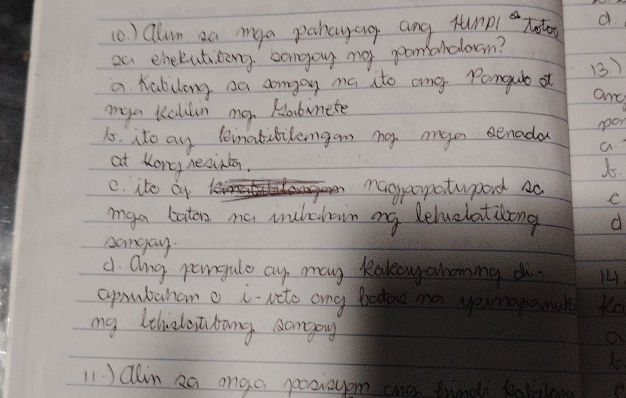 10.) Alin sa mga pahayag ang HINDI totoo
sa ehekutibong sangay ng pamahalaan?
a Kabilang sa sangay na ito ang Pangulo at
mga Kalihim ng Gabinete
b. ito ay kinabibilangan ng mga senador
at Kongresista.
c. ito ay nagpapatupad sa
mga batas na inihahain ng lehislatibong
sangay.
d. Ang pangulo ay may kakayahanang di-
aprubahan o i-veto ang batas na
ng lehislatibong sangay
11.) Alin sa mga posisyon ang hindi
d.
13.)
ang
a.
b.
c
d
14.
a
b.